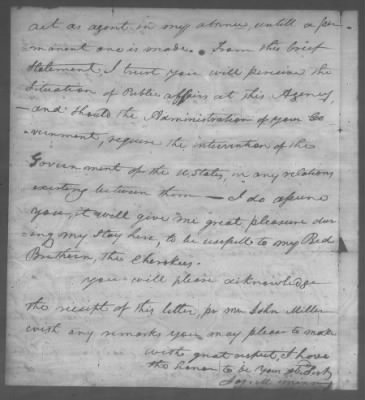 act as agent in my absence, untill a per
manent one is made. From this brief
Statement, I trust you will perceive the
Situation of Public affairs at this Agency,
and should the Administration of your Go
vernment, require the intervention of the
Government of the U. States, in any relations
existing between them — I do assure
you, it will give me great pleasure dur
ing my Stay here, to be usefull to my Red
Brethern, the Cherokees.
you will please acknowledge
the receipt of this letter, per Mr John Miller
with any remarks you may please to make
with great respect, I have
the honor to be your